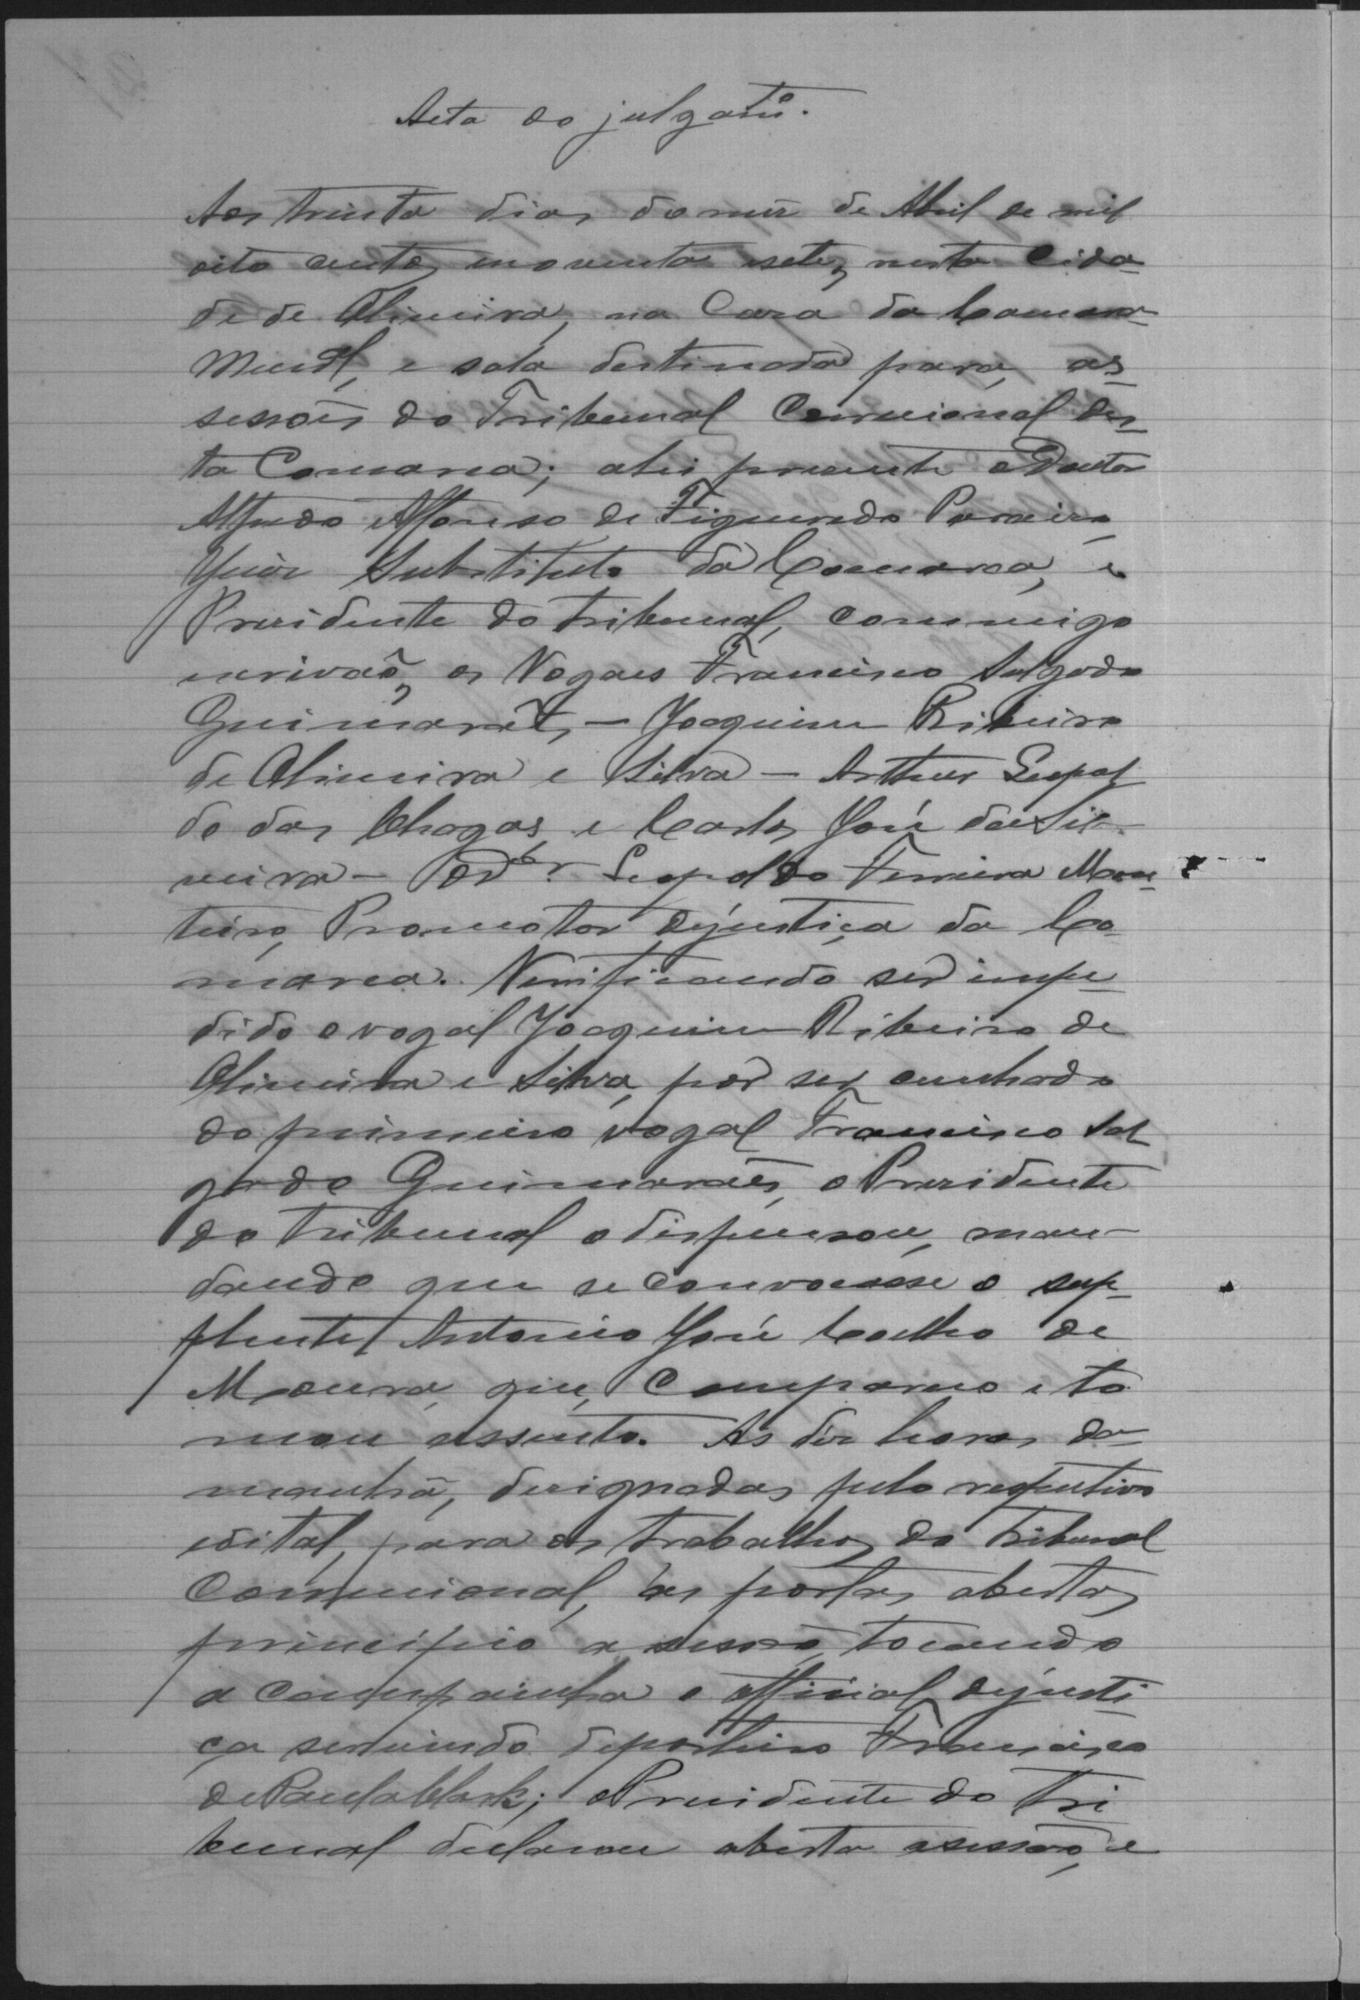 Acta do julgatº.
Aos trinta dias do mez de Abril de mil
oito centos noventa sete, nesta Cida-
de de Oliveira, na Casa da Camara
Munal, e sala destinada para as
sessões do Tribunal Correcional des-
ta Comarca; ahi presente o Doutor
Alfredo Affonso de Figueredo Pereira,
Juiz Substituto da Comarca, e
Presidente do tribunal, commigo
escrivão, os Vogaes Francisco Salgado
Guimarães, — Joaquim Ribeiro
de Oliveira e Silva — Arthur Leopol
do das Chagas, e Carlos José da Sil-
veira — O Dr Leopoldo Ferreira Mon-
teiro, Promotor dejustiça da Co-
marca. Verificando ser impe-
dido o vogal Joaquim Ribeiro de
Oliveira e Silva, por ser cunhado
do primeiro vogal Francisco Sal
gado Guimarães, o Presidente
do tribunal o dispensou, man-
dando que se convocasse o sup-
plente Antonio José Coelho de
Moura, que, Compareceo e to
mou assento. As déz horas da
manhã, designadas pelo respectivo
edital, para os trabalhos do tribunal
Correcional, às portas abertas
principio a sessão, tocando
a campainha o official dejusti
ça servindo deporteiro Francisco
de Paula Clark; o Presidente do Tri
bunal declarou aberta a sessão, e